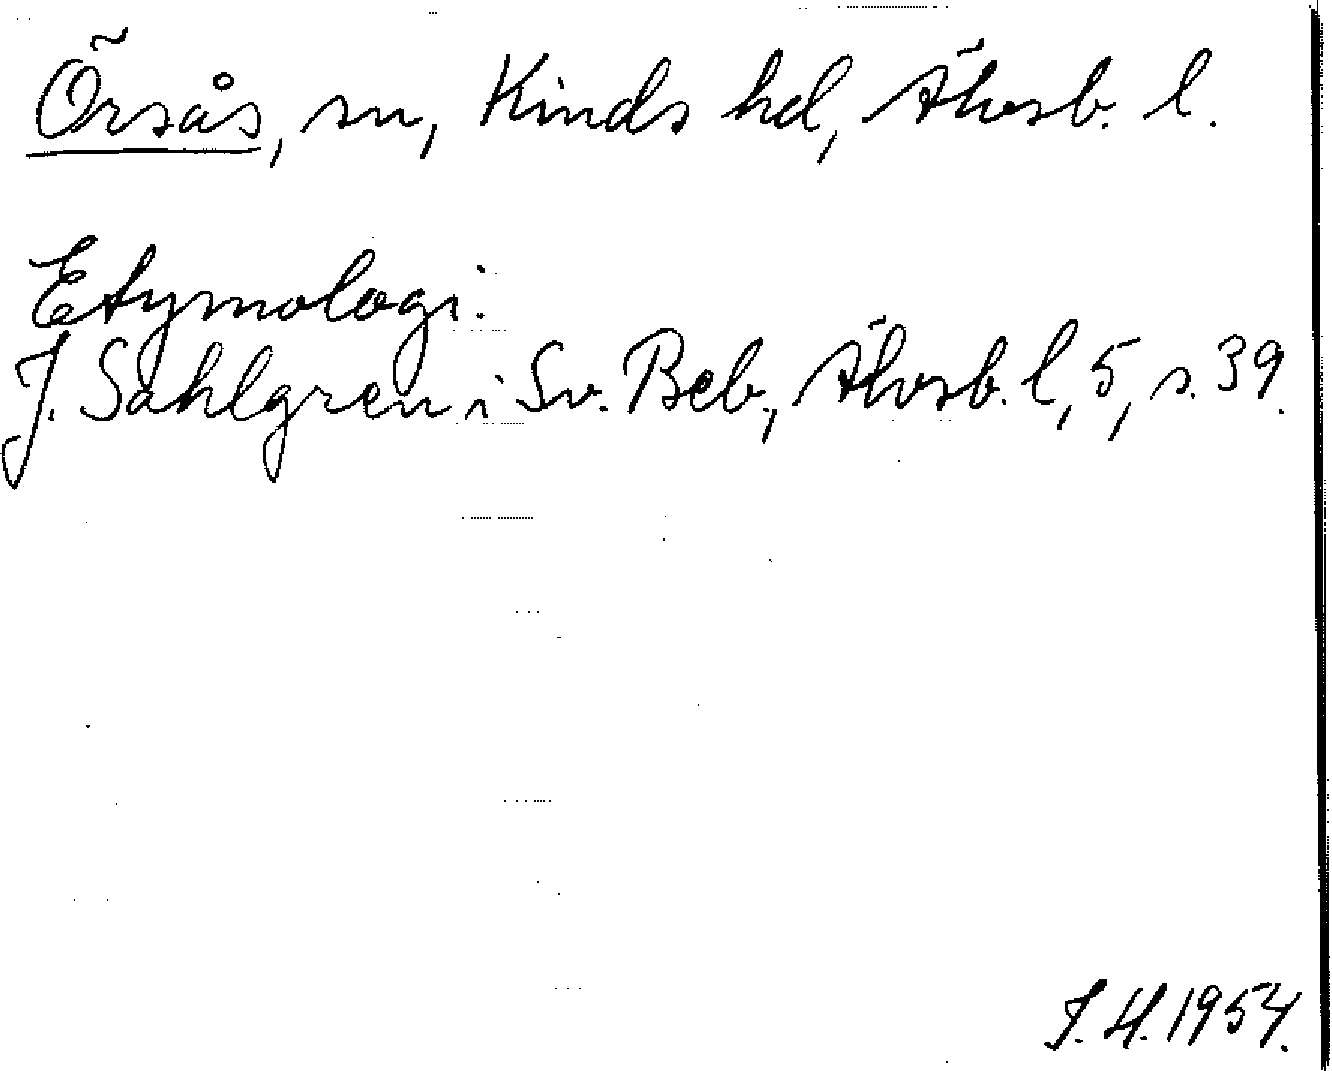 Örsås, sn, Kinds hd, Älvsb. l.
Etymologi:
J. Sahlgren i Sv. Beb., Älvsb. l, 5, s. 39.
I. H. 1954.